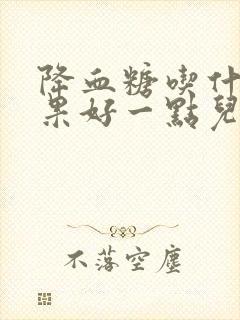 降血糖喫什
果好一點兒
不落空塵